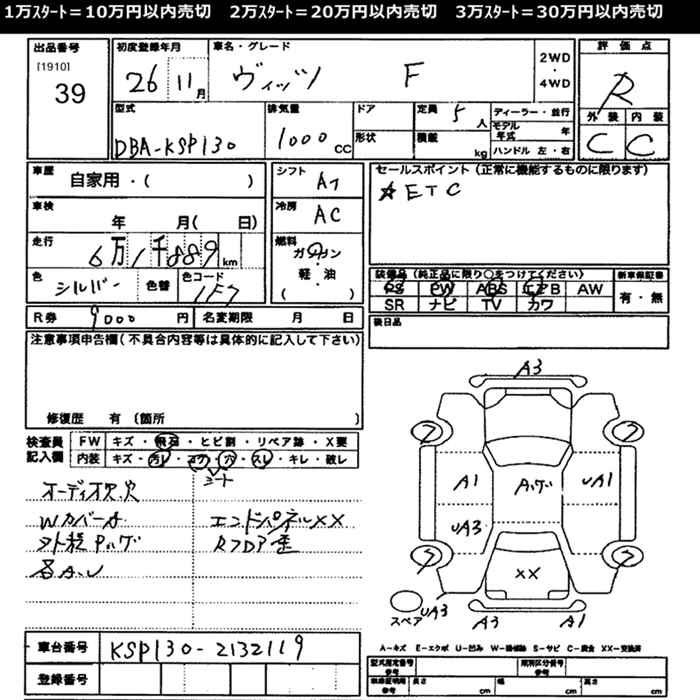 1万ｽﾀｰﾄ＝10万円以内売切　2万ｽﾀｰﾄ＝20万円以内売切　3万ｽﾀｰﾄ＝30万円以内売切
出品番号
[1910]
39
初度登録年月
26 11月
車名・グレード
ヴィッツ F
2WD
・
4WD
評価点
R
外装 内装
C C
型式
DBA-KSP130
排気量
1000 CC
ドア
形状
定員 5人
積載 kg
ディーラー・並行
モデル年式 年
ハンドル 左・右
車歴
自家用・( )
車検
年 月( 日)
走行
6万1千889km
色
シルバー
色替
色コード
1F7
シフト
AT
冷房
AC
燃料
ガソリン
・
軽・油
( )
セールスポイント(正常に機能するものに限ります)
☆ETC
装備品(純正品に限り○をつけてください)
PS PW ABS エアB AW
SR ナビ TV カワ
新車保証書
有・無
後日品
R券 9000円
名変期限 月 日
注意事項申告欄(不具合内容等は具体的に記入して下さい)
修復歴 有(箇所 )
検査員記入欄
FW キズ・飛石・ヒビ割・リペア跡・X要
内装 キズ・汚レ・コゲ・穴・スレ・キレ・破レ
シート
オーディオ欠.穴
Wカバー
外装Pハゲ
各A.U
エンドパネルXX
RフロアX歪
A3
A1
Aハゲ
UA1
UA3
XX
スペア
UA3
A3
A1
A-キズ E-エクボ U-凹み W-補修跡 S-サビ C-腐食 XX-交換済
車台番号
KSP130-2132119
登録番号
型式指定番号
参考
類別区分番号
参考
車検証明
参考
長さ cm
幅 cm
高さ cm